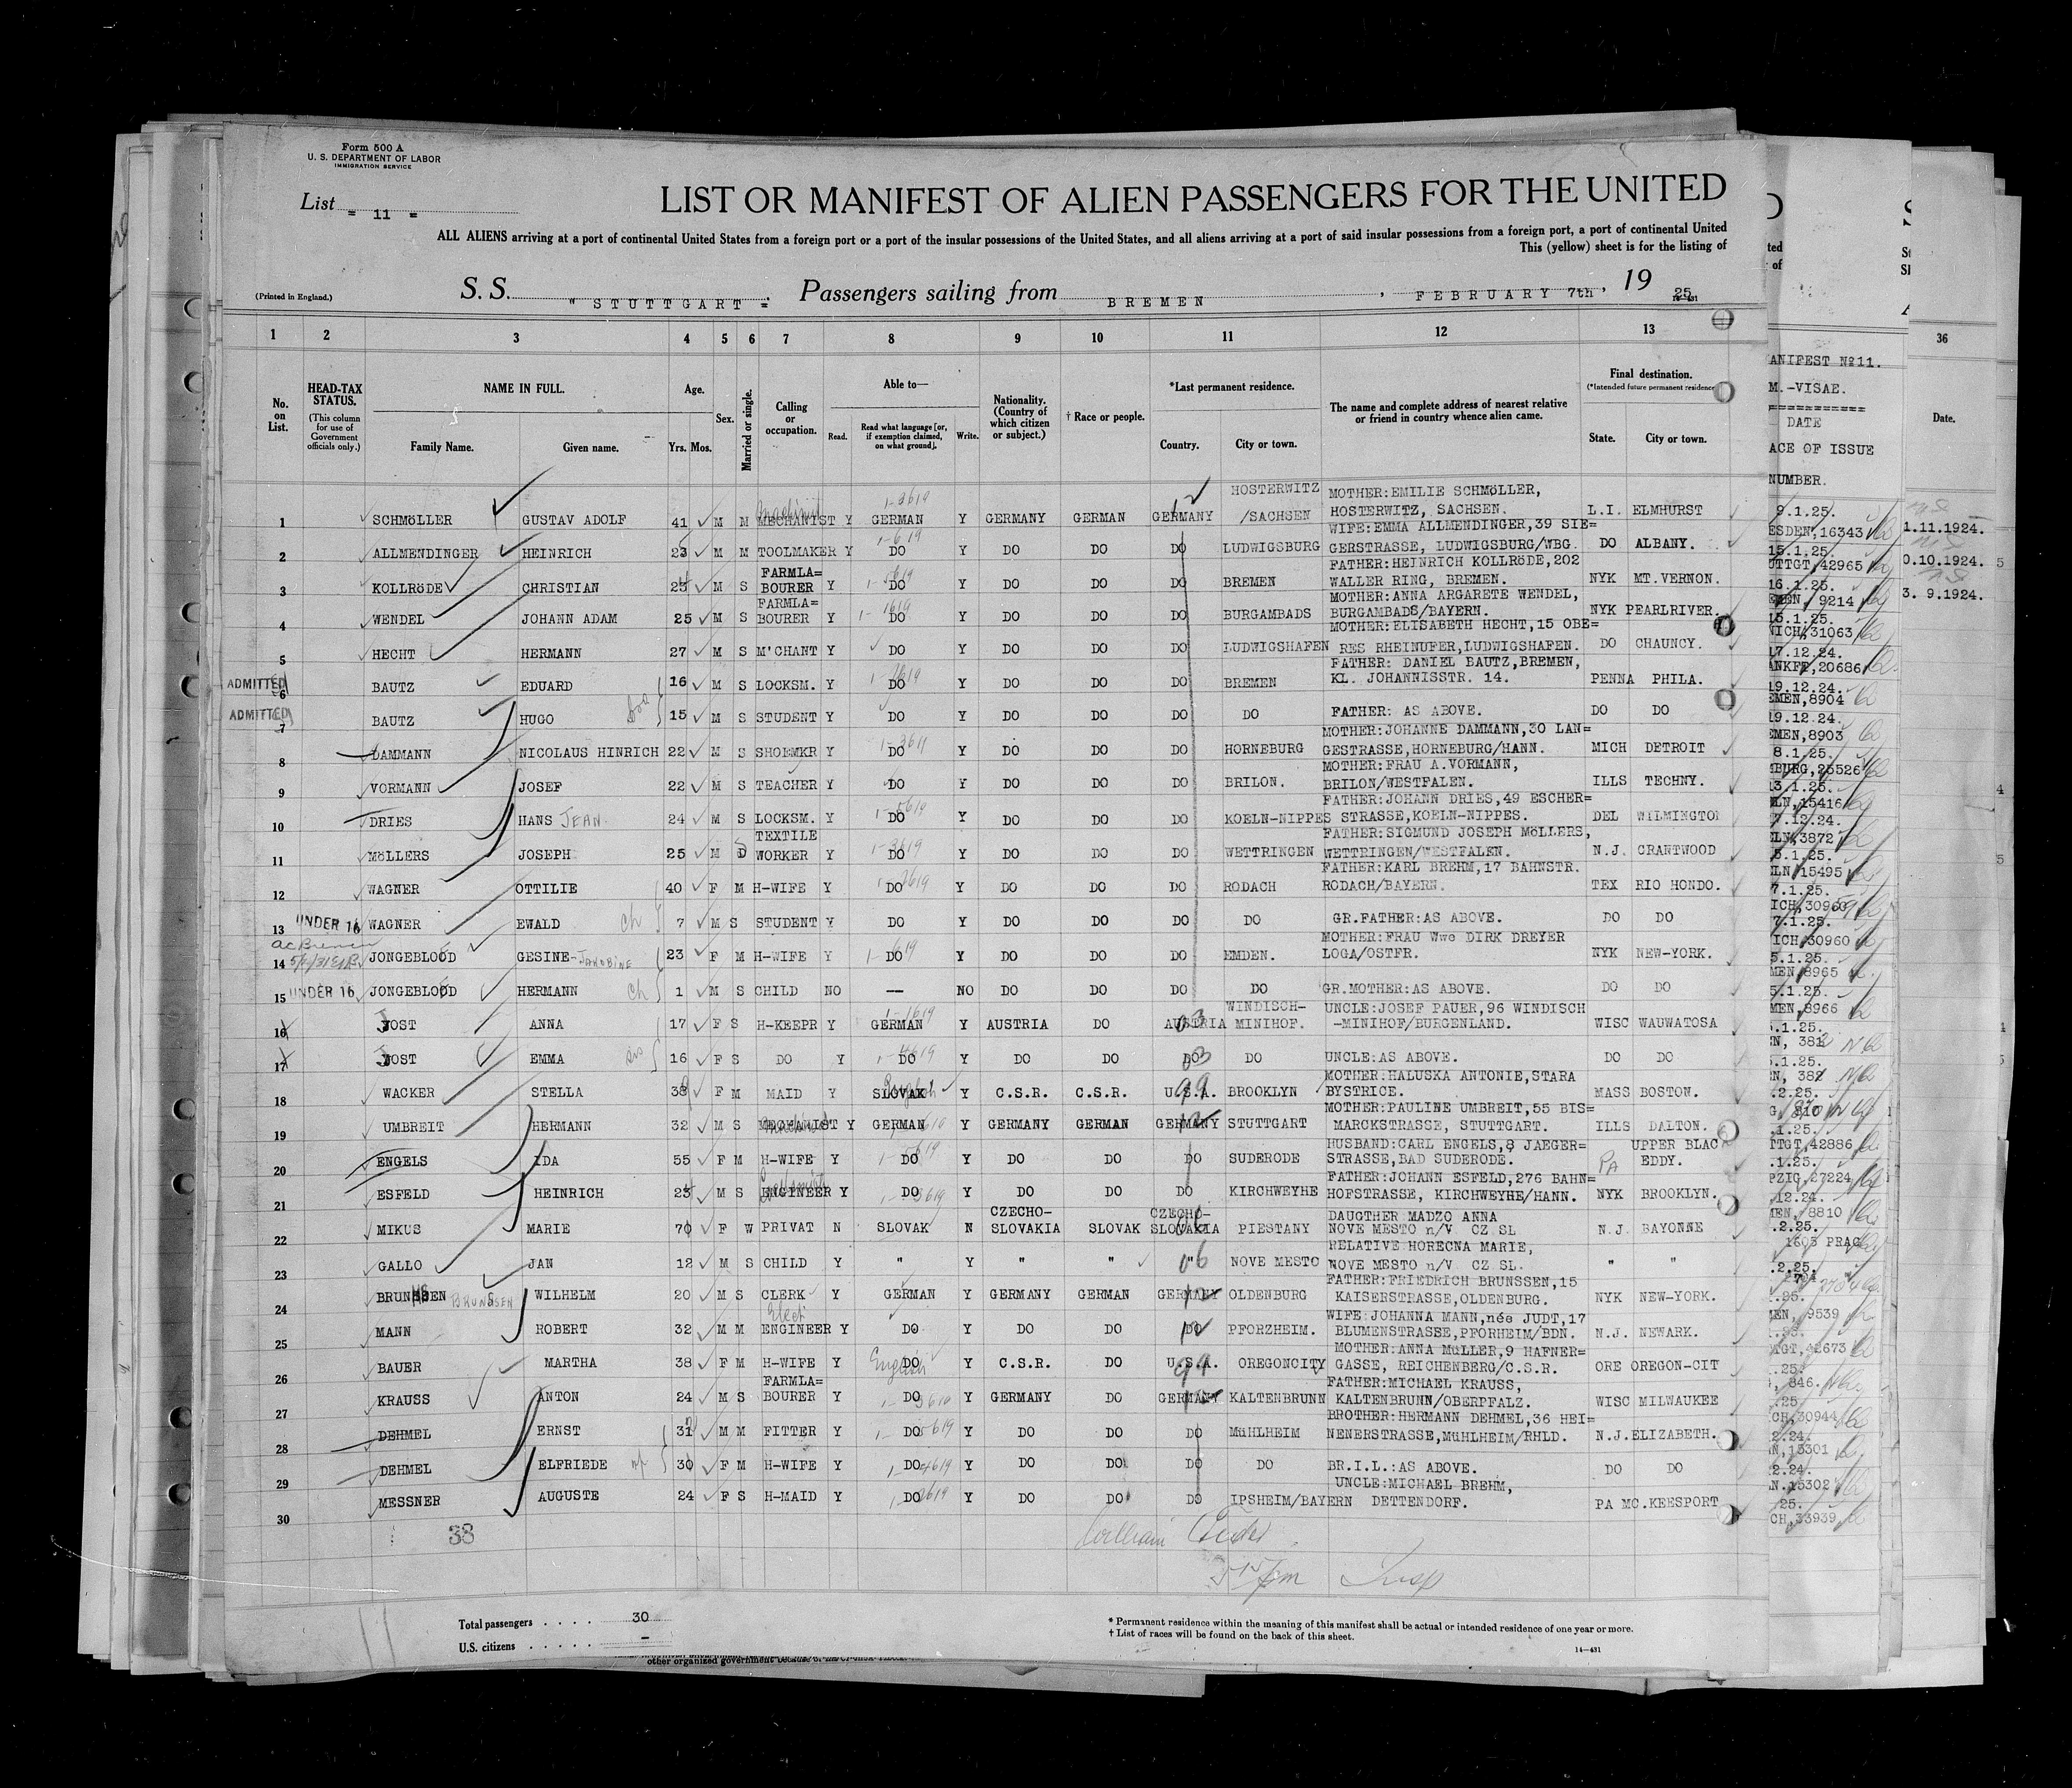 Form 500 A
U. S. DEPARTMENT OF LABOR
IMMIGRATION SERVICE
List = 11 =
LIST OR MANIFEST OF ALIEN PASSENGERS FOR THE UNITED
ALL ALIENS arriving at a port of continental United States from a foreign port or a port of the insular possessions of the United States, and all aliens arriving at a port of said insular possessions from a foreign port, a port of continental United
This (yellow) sheet is for the listing of
(Printed in England.)
S. S. "STUTTGART" Passengers sailing from BREMEN, FEBRUARY 7th, 19 25
1 2 3 4 5 6 7 8 9 10 11 12 13 36
No. on List.
HEAD-TAX STATUS.
(This column for use of Government officials only.)
NAME IN FULL.
Family Name. Given name.
Age.
Yrs. Mos.
Sex.
Married or single.
Calling or occupation.
Able to—
Read. Read what language [or, if exemption claimed, on what ground]. Write.
Nationality. (Country of which citizen or subject.)
† Race or people.
*Last permanent residence.
Country. City or town.
The name and complete address of nearest relative or friend in country whence alien came.
Final destination.
(*Intended future permanent residence
State. City or town.
ANIFEST No11.
M.-VISAE.
DATE
ACE OF ISSUE
NUMBER.
Date.
1 SCHMöLLER GUSTAV ADOLF 41 M M MECHANIST Y GERMAN Y GERMANY GERMAN GERMANY HOSTERWITZ /SACHSEN MOTHER:EMILIE SCHMöLLER, HOSTERWITZ, SACHSEN. L.I. ELMHURST 9.1.25. ESDEN,16343 1.11.1924.
2 ALLMENDINGER HEINRICH 23 M M TOOLMAKER Y DO Y DO DO DO LUDWIGSBURG WIFE:EMMA ALLMENDINGER,39 SIE= GERSTRASSE, LUDWIGSBURG/WBG. DO ALBANY. 15.1.25. UTTGT,42965 0.10.1924.
3 KOLLRöDE CHRISTIAN 25 M S FARMLA= BOURER Y DO Y DO DO DO BREMEN FATHER:HEINRICH KOLLRöDE,202 WALLER RING, BREMEN. NYK MT.VERNON. 16.1.25. EMEN, 9214 3. 9.1924.
4 WENDEL JOHANN ADAM 25 M S FARMLA= BOURER Y DO Y DO DO DO BURGAMBADS MOTHER:ANNA ARGARETE WENDEL, BURGAMBADS/BAYERN. NYK PEARLRIVER. 15.1.25. NICH,31063
5 HECHT HERMANN 27 M S M'CHANT Y DO Y DO DO DO LUDWIGSHAFEN MOTHER:ELISABETH HECHT,15 OBE= RES RHEINUFER,LUDWIGSHAFEN. DO CHAUNCY. 17.12.24. ANKFF,20686
ADMITTED 6 BAUTZ EDUARD 16 M S LOCKSM. Y DO Y DO DO DO BREMEN FATHER: DANIEL BAUTZ,BREMEN, KL. JOHANNISSTR. 14. PENNA PHILA. 19.12.24. EMEN,8904
ADMITTED 7 BAUTZ HUGO 15 M S STUDENT Y DO Y DO DO DO DO FATHER: AS ABOVE. DO DO 19.12.24. EMEN,8903
8 DAMMANN NICOLAUS HINRICH 22 M S SHOEMKR Y DO Y DO DO DO HORNEBURG MOTHER:JOHANNE DAMMANN,30 LAN= GESTRASSE,HORNEBURG/HANN. MICH DETROIT 8.1.25. MBURG,25526
9 VORMANN JOSEF 22 M S TEACHER Y DO Y DO DO DO BRILON. MOTHER:FRAU A.VORMANN, BRILON/WESTFALEN. ILLS TECHNY. 13.1.25. LN,15416
10 DRIES HANS JEAN 24 M S LOCKSM. Y DO Y DO DO DO KOELN-NIPPES FATHER:JOHANN DRIES,49 ESCHER= STRASSE,KOELN-NIPPES. DEL WILMINGTON 7.12.24. LN,3872
11 MöLLERS JOSEPH 25 M S TEXTILE WORKER Y DO Y DO DO DO WETTRINGEN FATHER:SIGMUND JOSEPH MöLLERS, WETTRINGEN/WESTFALEN. N.J. CRANTWOOD 5.1.25. LN,15495
12 WAGNER OTTILIE 40 F M H-WIFE Y DO Y DO DO DO RODACH FATHER:KARL BREHM,17 BAHNSTR. RODACH/BAYERN. TEX RIO HONDO. 7.1.25. ICH,30960
13 UNDER 16 WAGNER EWALD ch 7 M S STUDENT Y DO Y DO DO DO DO GR.FATHER:AS ABOVE. DO DO 7.1.25. ICH,30960
14 JONGEBLOED GESINE-JAKOBINE 23 F M H-WIFE Y DO Y DO DO DO EMDEN. MOTHER:FRAU Wwe DIRK DREYER LOGA/OSTFR. NYK NEW-YORK. 5.1.25. MEN,8965
15 UNDER 16 JONGEBLOED HERMANN ch 1 M S CHILD NO — NO DO DO DO DO GR.MOTHER:AS ABOVE. DO DO 5.1.25. MEN,8966
16 JOST ANNA 17 F S H-KEEPR Y GERMAN Y AUSTRIA DO AUSTRIA WINDISCH- MINIHOF. UNCLE:JOSEF PAUER,96 WINDISCH -MINIHOF/BURGENLAND. WISC WAUWATOSA
17 JOST EMMA sis 16 F S DO Y DO Y DO DO DO DO UNCLE:AS ABOVE. DO DO
18 WACKER STELLA 38 F M MAID Y SLOVAK English Y C.S.R. C.S.R. U.S.A. BROOKLYN MOTHER:HALUSKA ANTONIE,STARA BYSTRICE. MASS BOSTON.
19 UMBREIT HERMANN 32 M S MECHANIST Y GERMAN Y GERMANY GERMAN GERMANY STUTTGART MOTHER:PAULINE UMBREIT,55 BIS= MARCKSTRASSE, STUTTGART. ILLS DALTON. TTGT,42886
20 ENGELS IDA 55 F M H-WIFE Y DO Y DO DO DO SUDERODE HUSBAND:CARL ENGELS,8 JAEGER= STRASSE,BAD SUDERODE. PA UPPER BLAC EDDY. PZIG,27224
21 ESFELD HEINRICH 23 M S ENGINEER Y DO Y DO DO DO KIRCHWEYHE FATHER:JOHANN ESFELD,276 BAHN= HOFSTRASSE, KIRCHWEYHE/HANN. NYK BROOKLYN. .12.24. MEN, 8810
22 MIKUS MARIE 70 F W PRIVAT N SLOVAK N CZECHO- SLOVAKIA SLOVAK CZECHO- SLOVAKIA PIESTANY DAUGTHER MADZO ANNA NOVE MESTO n/V CZ SL N.J. BAYONNE .2.25. 1605 PRAG
23 GALLO JAN 12 M S CHILD Y " Y " " " NOVE MESTO RELATIVE HORECNA MARIE, NOVE MESTO n/V CZ SL. " " .2.25.
24 BRUNSSEN BRUNSSEN WILHELM 20 M S CLERK Y GERMAN Y GERMANY GERMAN GERMANY OLDENBURG FATHER:FRIEDRICH BRUNSSEN,15 KAISERSTRASSE,OLDENBURG. NYK NEW-YORK. MEN, 9539
25 MANN ROBERT 32 M M Elect ENGINEER Y DO Y DO DO DO PFORZHEIM. WIFE:JOHANNA MANN,née JUDT,17 BLUMENSTRASSE,PFORHEIM/BDN. N.J. NEWARK. TGT,42673
26 BAUER MARTHA 38 F M H-WIFE Y DO English Y C.S.R. DO U.S.A. OREGONCITY MOTHER:ANNA MüLLER,9 HAFNER= GASSE, REICHENBERG/C.S.R. ORE OREGON-CIT .25. 846.
27 KRAUSS ANTON 24 M S FARMLA= BOURER Y DO Y GERMANY DO GERMANY KALTENBRUNN FATHER:MICHAEL KRAUSS, KALTENBRUNN/OBERPFALZ. WISC MILWAUKEE .25 CH,30944
28 DEHMEL ERNST 31 M M FITTER Y DO Y DO DO DO MüHLHEIM BROTHER:HERMANN DEHMEL,36 HEI= NENERSTRASSE,MüHLHEIM/RHLD. N.J. ELIZABETH. 2.24. N,15301
29 DEHMEL ELFRIEDE 30 F M H-WIFE Y DO Y DO DO DO DO BR.I.L.:AS ABOVE. DO DO 2.24. N.15302
30 MESSNER AUGUSTE 24 F S H-MAID Y DO Y DO DO DO IPSHEIM/BAYERN UNCLE:MICHAEL BREHM, DETTENDORF. PA MC.KEESPORT /25. CH,33939
38
William
Insp
Total passengers . . . . 30
U.S. citizens . . . . . —
* Permanent residence within the meaning of this manifest shall be actual or intended residence of one year or more.
† List of races will be found on the back of this sheet.
14—431